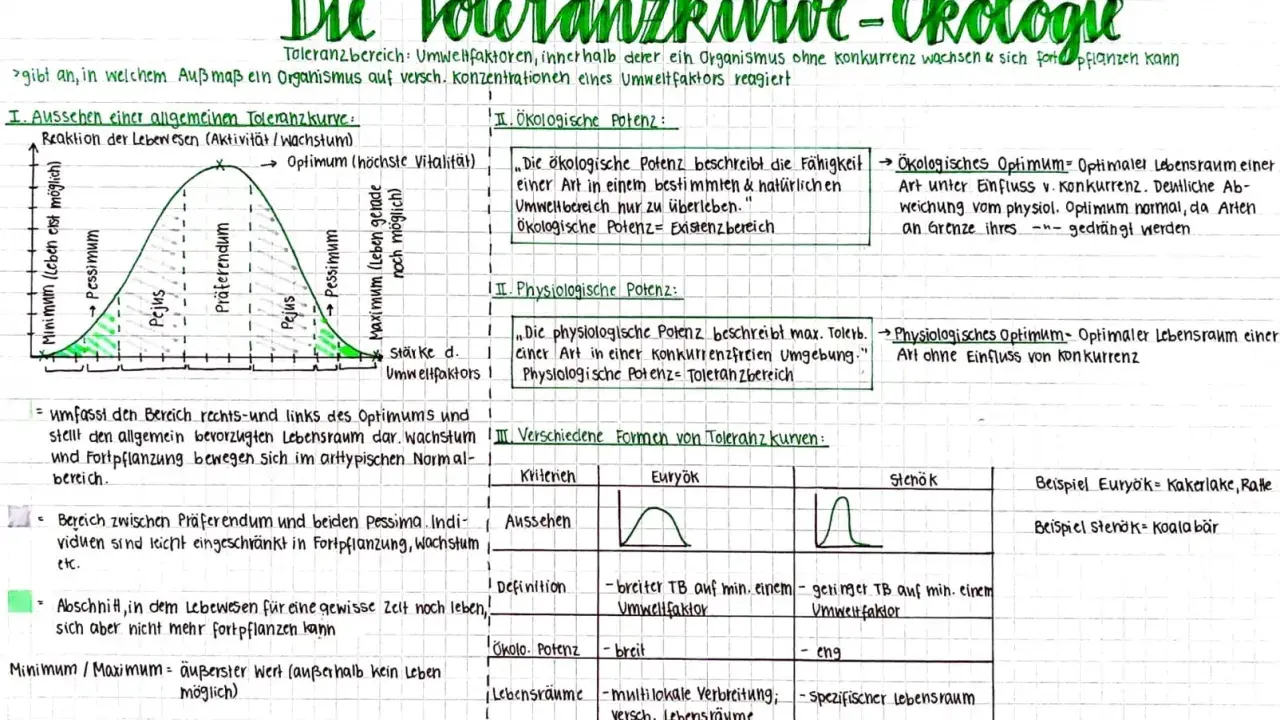 Die Toleranzkurve-Ökologie
Toleranzbereich: Umweltfaktoren, innerhalb derer ein Organismus ohne Konkurrenz wachsen & sich fortpflanzen kann
>gibt an, in welchem Außmaß ein Organismus auf versch. Konzentrationen eines Umweltfaktors reagiert
I. Aussehen einer allgemeinen Toleranzkurve:
Reaktion der Lebewesen (Aktivität/Wachstum)
→ Optimum (höchste Vitalität)
Minimum (Leben erst möglich)
→ Pessimum
Pejus
Präferendum
Pejus
→ Pessimum
Maximum (Leben gerade
noch möglich)
Stärke d.
Umweltfaktors
= umfasst den Bereich rechts-und links des Optimums und
stellt den allgemein bevorzugten Lebensraum dar. Wachstum
und Fortpflanzung bewegen sich im arttypischen Normal-
bereich.
= Bereich zwischen Präferendum und beiden Pessima. Indi-
viduen sind leicht eingeschränkt in Fortpflanzung, Wachstum
etc.
= Abschnitt, in dem Lebewesen für eine gewisse Zeit noch leben,
sich aber nicht mehr fortpflanzen kann
Minimum / Maximum = äußerster Wert (außerhalb kein Leben
möglich)
II. Ökologische Potenz:
„Die ökologische Potenz beschreibt die Fähigkeit
einer Art in einem bestimmten & natürlichen
Umweltbereich nur zu überleben."
Ökologische Potenz= Existenzbereich
→ Ökologisches Optimum= Optimaler Lebensraum einer
Art unter Einfluss v. Konkurrenz. Deutliche Ab-
weichung vom physiol. Optimum normal, da Arten
an Grenze ihres -"- gedrängt werden
II. Physiologische Potenz:
„Die physiologische Potenz beschreibt max. Tolerb.
einer Art in einer konkurrenzfreien Umgebung."
Physiologische Potenz= Toleranzbereich
→ Physiologisches Optimum= Optimaler Lebensraum einer
Art ohne Einfluss von Konkurrenz
III. Verschiedene Formen von Toleranzkurven:
Kriterien Euryök Stenök
Aussehen
Definition - breiter TB auf min. einem - geringer TB auf min. einem
Umweltfaktor Umweltfaktor
Ökolo. Potenz - breit - eng
Lebensräume - multilokale Verbreitung; - spezifischer Lebensraum
versch. Lebensräume
Beispiel Euryök= Kakerlake, Ratte
Beispiel Stenök= Koalabär